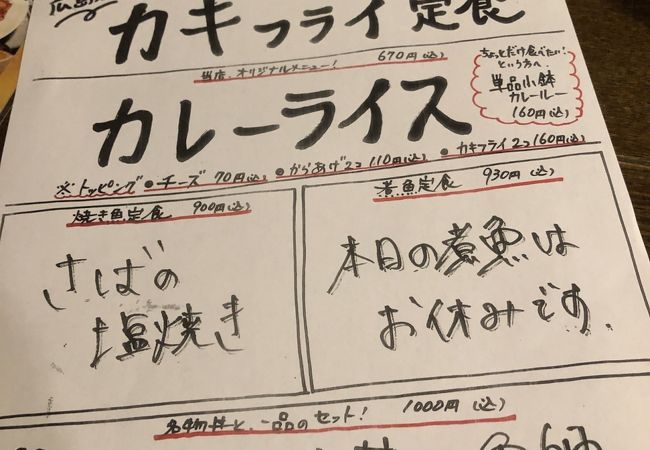 カキフライ定食
当店、オリジナルメニュー! 670円(込)
カレーライス
ちょっとだけ食べたい!
という方へ
単品小鉢
カレールー
160円(込)
※トッピング ●チーズ 70円(込) ●からあげ2コ 110円(込) ●カキフライ2コ 160円(込)
焼き魚定食 900円(込)
さばの
塩焼き
煮魚定食 930円(込)
本日の煮魚は
お休みです。
名物丼と、一品のセット! 1000円(込)